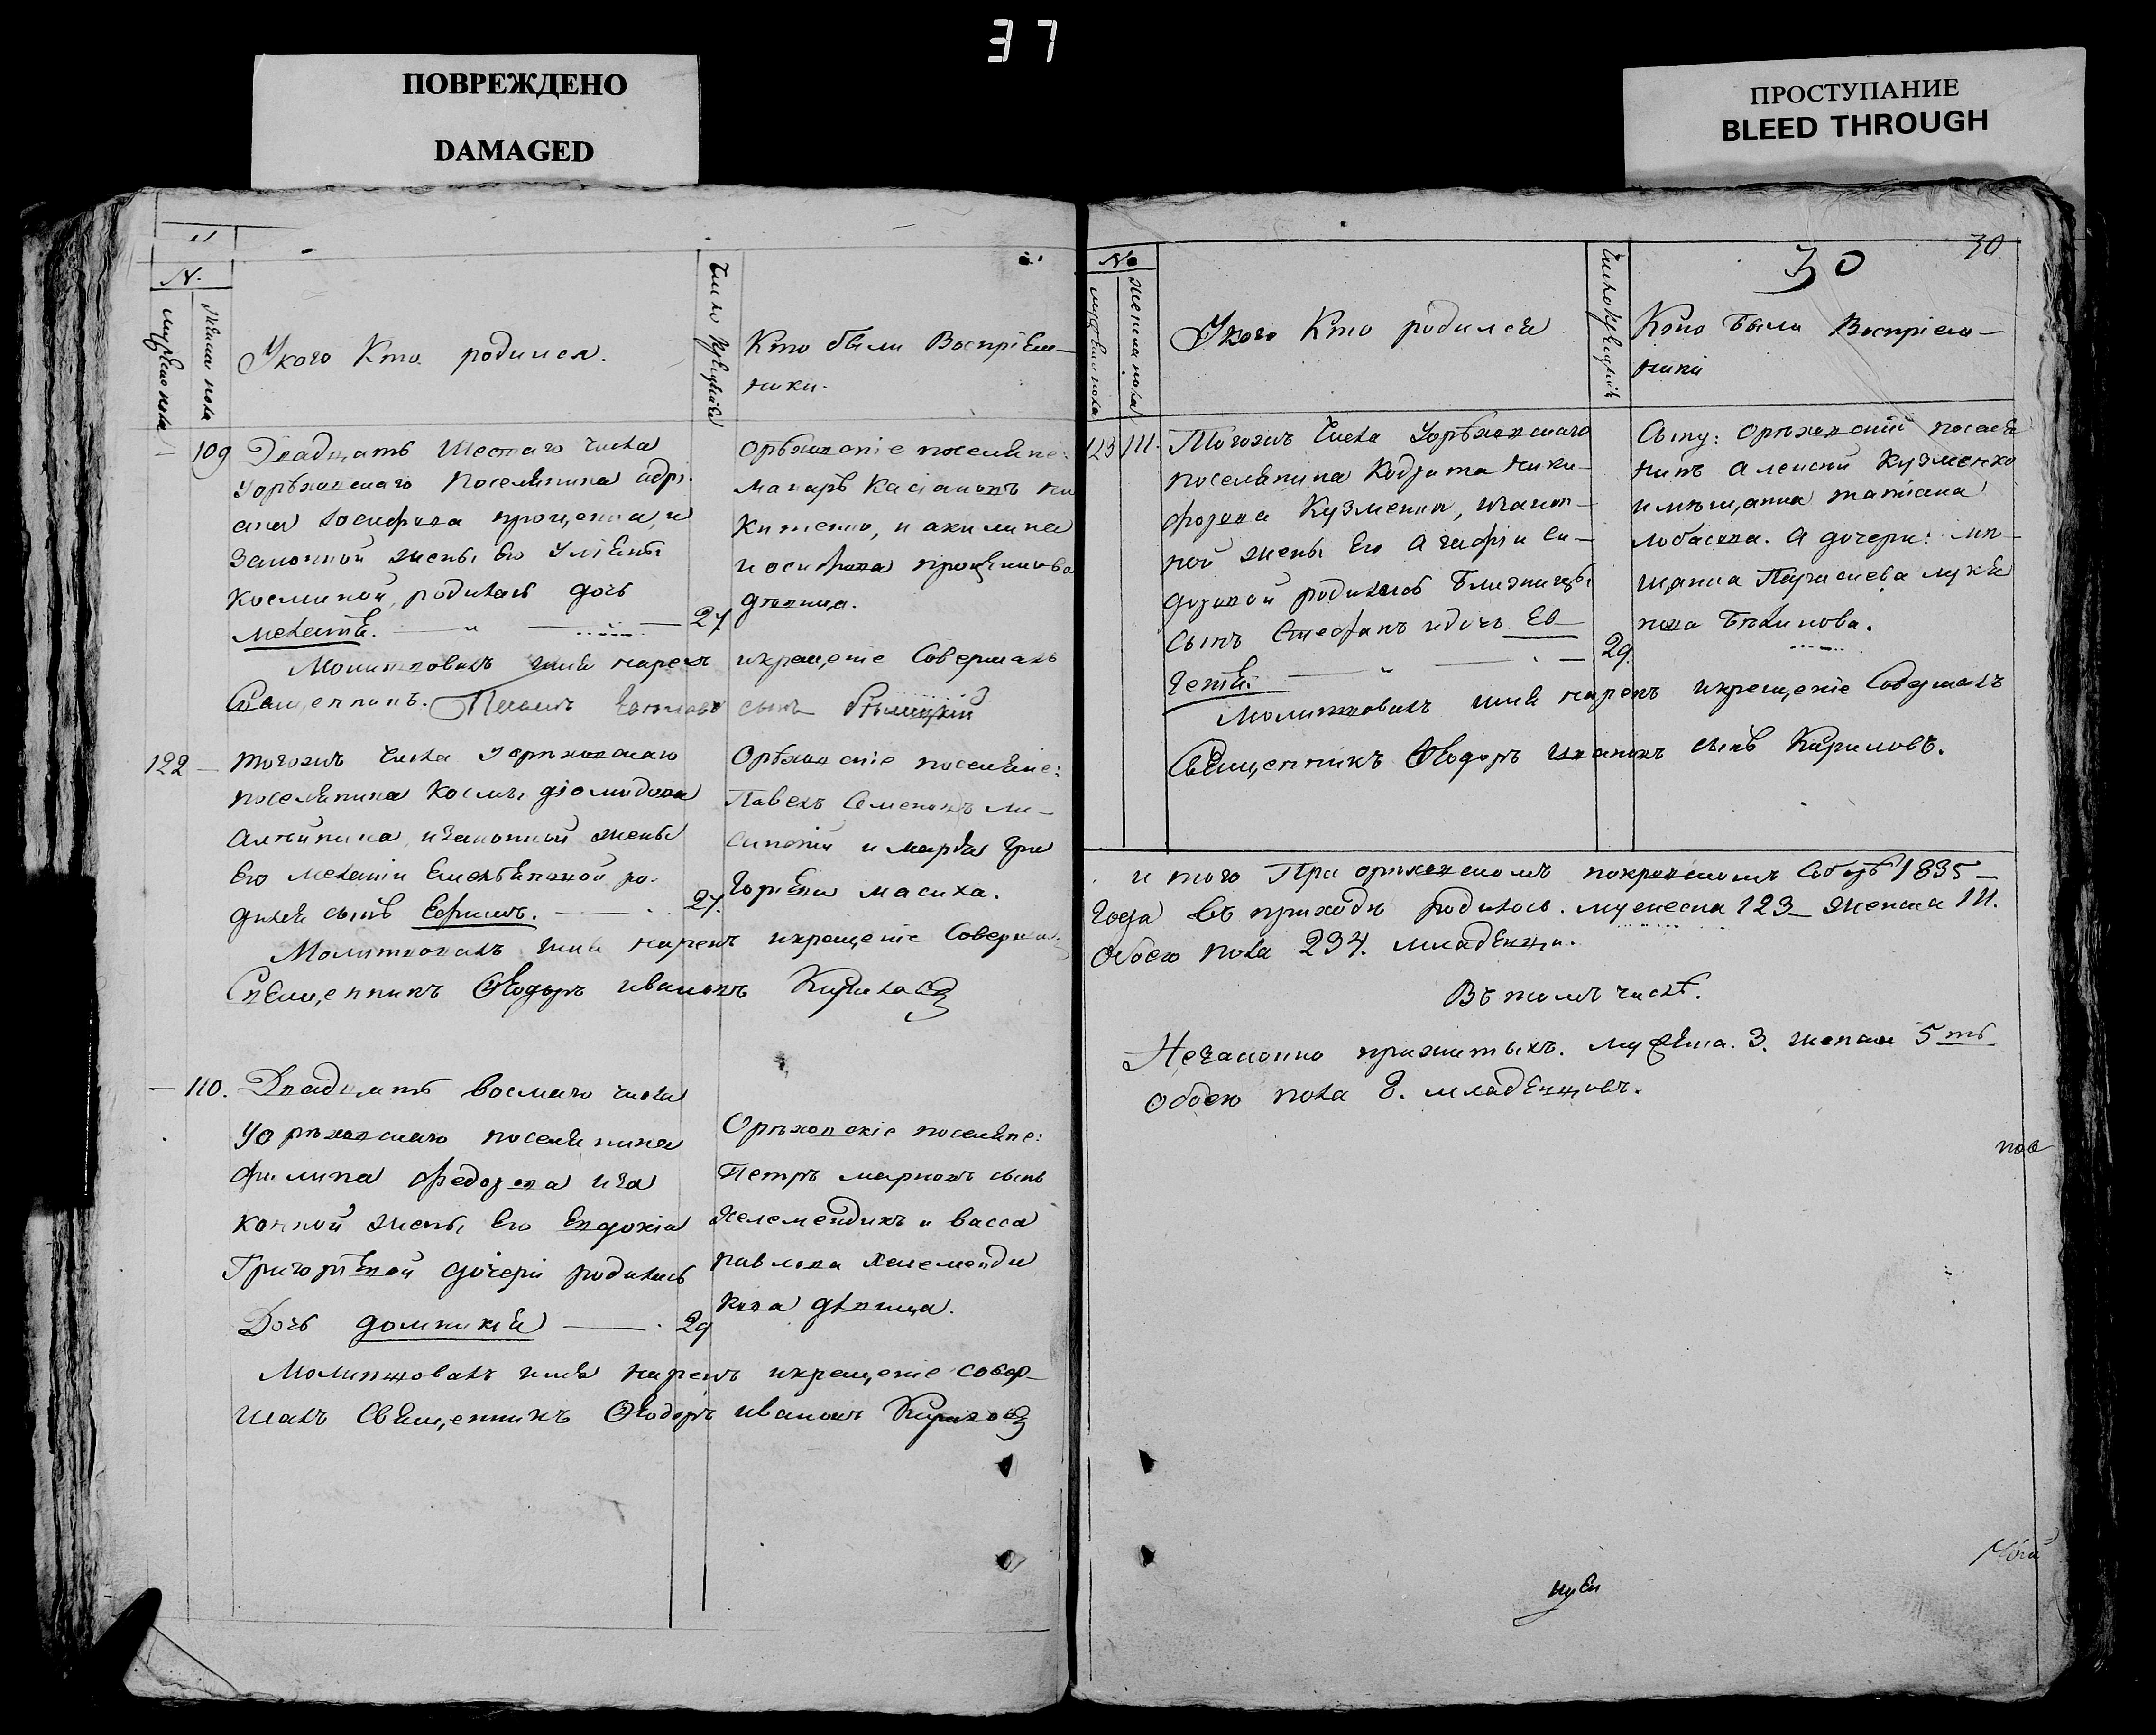 37
ПОВРЕЖДЕНО
DAMAGED
ПРОСТУПАНИЕ
BLEED THROUGH
N.
мужеска пола
женска пола
Укого Кто родился.
Число крещенія
Кто были Воспріем-
ники.
109 Двадцать Шестаго числа
Уорѣховскаго Поселянина адрі-
ана Іосифова проценка, и
Законной жены Его Уліяны
Косминой, родилась дочь
Меланія. 27
Орѣховскіе поселяне:
Макарь Касіановъ Ни
китенко, и акилина
иосифова проценкова
дѣвица.
Молитвовалъ имя нарекъ икрещеніе Совершалъ
Священникъ. сынъ
122 – тогожъ числа уорѣховскаго
поселянина Космы діомидова
изаконной жены
Его Меланіи Емельяновой ро-
дился сынъ Ефимъ. 27.
Орѣховскіе поселяне:
Павелъ Семеновъ Ли-
и марѳа Гри
горіева масиха.
Молитвовалъ имя нарекъ икрещеніе Соверша
Священникъ Ѳеодоръ ивановъ Кириловъ
– 110. Двадцать восмаго числа
Уорѣховскаго поселянина
филипа федорова иза
конной жены Его Евдокіи
Григоріевой дочери родилась
Дочь домникія 29
Орѣховскіе поселяне:
Петръ марковъ сынъ
Желемендикъ и васса
павлова Желеменди
кова дѣвица.
Молитвовалъ имя нарекъ икрещеніе совер-
шалъ Священникъ Ѳеодоръ ивановъ Кириловъ
30
30
No
мужеска пола
женска пола
Укого Кто родился
Число крещенія
Кто были Воспріем-
ники
123 111. Тогожъ числа Уорѣховскаго
поселянина Кодрата Ники-
форова Кузменка, изакон-
ной жены Его Агафіи Си-
доровой родилась близницы
Сынъ Стефанъ идочь Ев
генія. 29.
Сыну: Орѣховскій поселя
нинъ Алексій Кузменко
имѣщанка татіана
лобасова. А дочери: мѣ-
щанка Параскева луки
нова Бѣликова.
Молитвовалъ имя нарекъ икрещеніе Совершалъ
Священникъ Ѳеодоръ ивановъ сынъ Кириловъ.
и того При орѣховскомъ покровскомъ Соборѣ 1835-
Года въ приходѣ родилось. мужеска 123 – женска 111.
Обоего пола 234. младенца.
Въ томъ числѣ.
Незаконно прижитыхъ. мужеска. 3. женска 5ть
Обоего пола 8. младенцовъ.